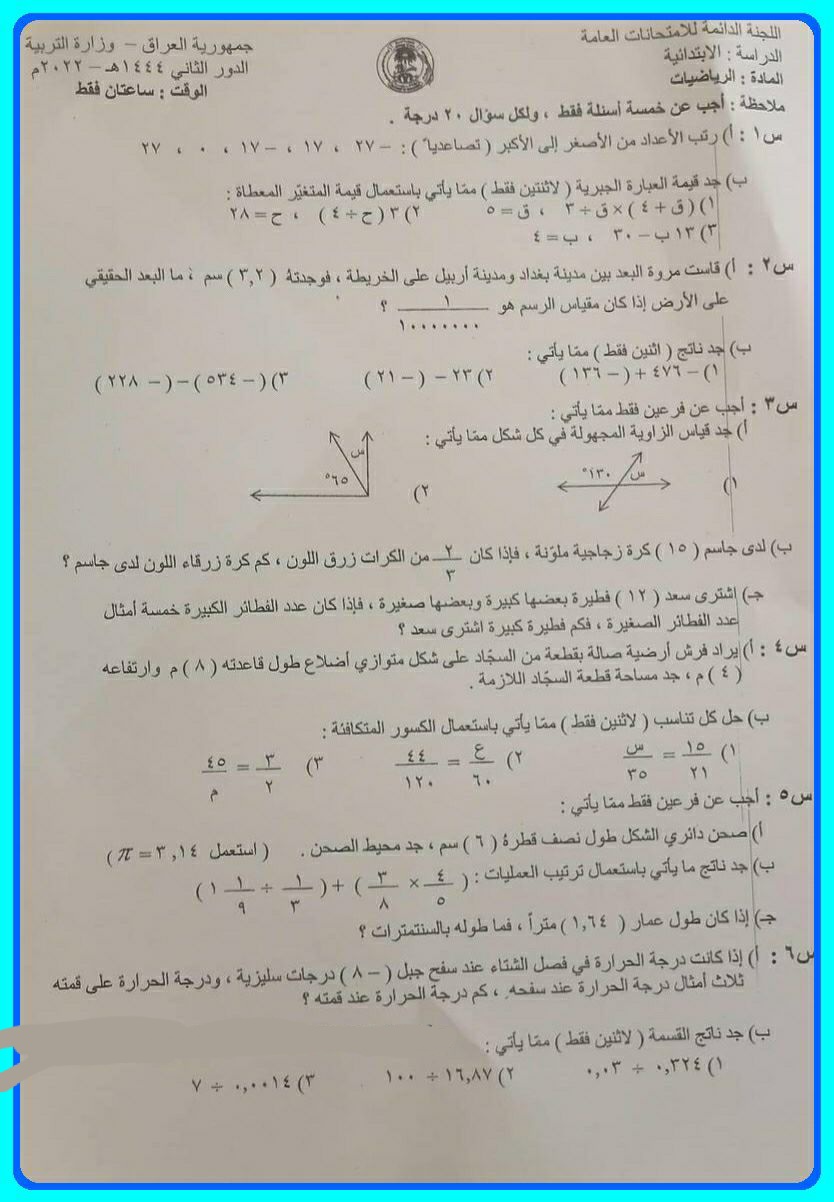 اللجنة الدائمة للامتحانات العامة
الدراسة : الابتدائية
المادة : الرياضيات
جمهورية العراق – وزارة التربية
الدور الثاني ١٤٤٤هـ – ٢٠٢٢م
الوقت : ساعتان فقط
ملاحظة : أجب عن خمسة أسئلة فقط ، ولكل سؤال ٢٠ درجة .
س١ : أ) رتب الأعداد من الأصغر إلى الأكبر ( تصاعدياً ) : – ٢٧ ، ١٧ ، –١٧ ، ٠ ، ٢٧
ب) جد قيمة العبارة الجبرية ( لاثنتين فقط ) ممّا يأتي باستعمال قيمة المتغيّر المعطاة :
١) ( ق + ٤ ) × ق ÷ ٣ ، ق = ٥ ٢) ٣ ( ح ÷ ٤ ) ، ح = ٢٨
٣) ١٣ ب – ٣٠ ، ب = ٤
س٢ : أ) قاست مروة البعد بين مدينة بغداد ومدينة أربيل على الخريطة ، فوجدتهُ ( ٣,٢ ) سم ، ما البعد الحقيقي
على الأرض إذا كان مقياس الرسم هو ١/١٠٠٠٠٠٠٠ ؟
ب) جد ناتج ( اثنين فقط ) ممّا يأتي :
١) – ٤٧٦ + ( – ١٣٦ ) ٢) ٢٣ – ( – ٢١ ) ٣) ( – ٥٣٤ ) – ( – ٢٢٨ )
س٣ : أجب عن فرعين فقط ممّا يأتي :
أ) جد قياس الزاوية المجهولة في كل شكل ممّا يأتي :
١) ١٣٠° س ٢) ٦٥° س
ب) لدى جاسم ( ١٥ ) كرة زجاجية ملوّنة ، فإذا كان ٢/٣ من الكرات زرق اللون ، كم كرة زرقاء اللون لدى جاسم ؟
جـ) اشترى سعد ( ١٢ ) فطيرة بعضها كبيرة وبعضها صغيرة ، فإذا كان عدد الفطائر الكبيرة خمسة أمثال
عدد الفطائر الصغيرة ، فكم فطيرة كبيرة اشترى سعد ؟
س٤ : أ) يراد فرش أرضية صالة بقطعة من السجّاد على شكل متوازي أضلاع طول قاعدته ( ٨ ) م وارتفاعه
( ٤ ) م ، جد مساحة قطعة السجّاد اللازمة .
ب) حل كل تناسب ( لاثنين فقط ) ممّا يأتي باستعمال الكسور المتكافئة :
١) ١٥/٢١ = س/٣٥ ٢) ع/٦٠ = ٤٤/١٢٠ ٣) ٣/٢ = ٤٥/م
س٥ : أجب عن فرعين فقط ممّا يأتي :
أ) صحن دائري الشكل طول نصف قطرهُ ( ٦ ) سم ، جد محيط الصحن . ( استعمل π = ٣,١٤ )
ب) جد ناتج ما يأتي باستعمال ترتيب العمليات : ( ٤/٥ × ٣/٨ ) + ( ١/٣ ÷ ١ ١/٩ )
جـ) إذا كان طول عمار ( ١,٦٤ ) متراً ، فما طوله بالسنتمترات ؟
س٦ : أ) إذا كانت درجة الحرارة في فصل الشتاء عند سفح جبل ( – ٨ ) درجات سليزية ، ودرجة الحرارة على قمته
ثلاث أمثال درجة الحرارة عند سفحه ، كم درجة الحرارة عند قمته ؟
ب) جد ناتج القسمة ( لاثنين فقط ) ممّا يأتي :
١) ٠,٣٢٤ ÷ ٠,٠٣ ٢) ١٦,٨٧ ÷ ١٠٠ ٣) ٠,٠٠١٤ ÷ ٧